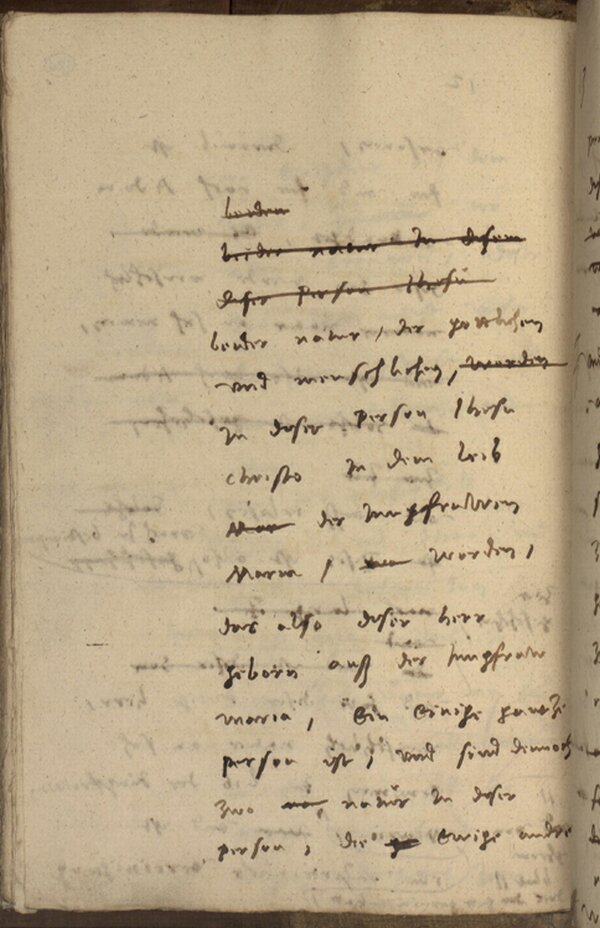 beiden
beider natur in diser
diser person Ihesu
beider natur, der gottlichen
vnd menschlichen, worden
in diser person Ihesu
christo in dem leib
Mar der Jungfrawen
Maria, worden,
das also diser herr
geborn auß der Jungfraw
maria, Ein Einige gantze
person ist, vnd sind dennoch
zwo natur in diser
person, die Ewige andre